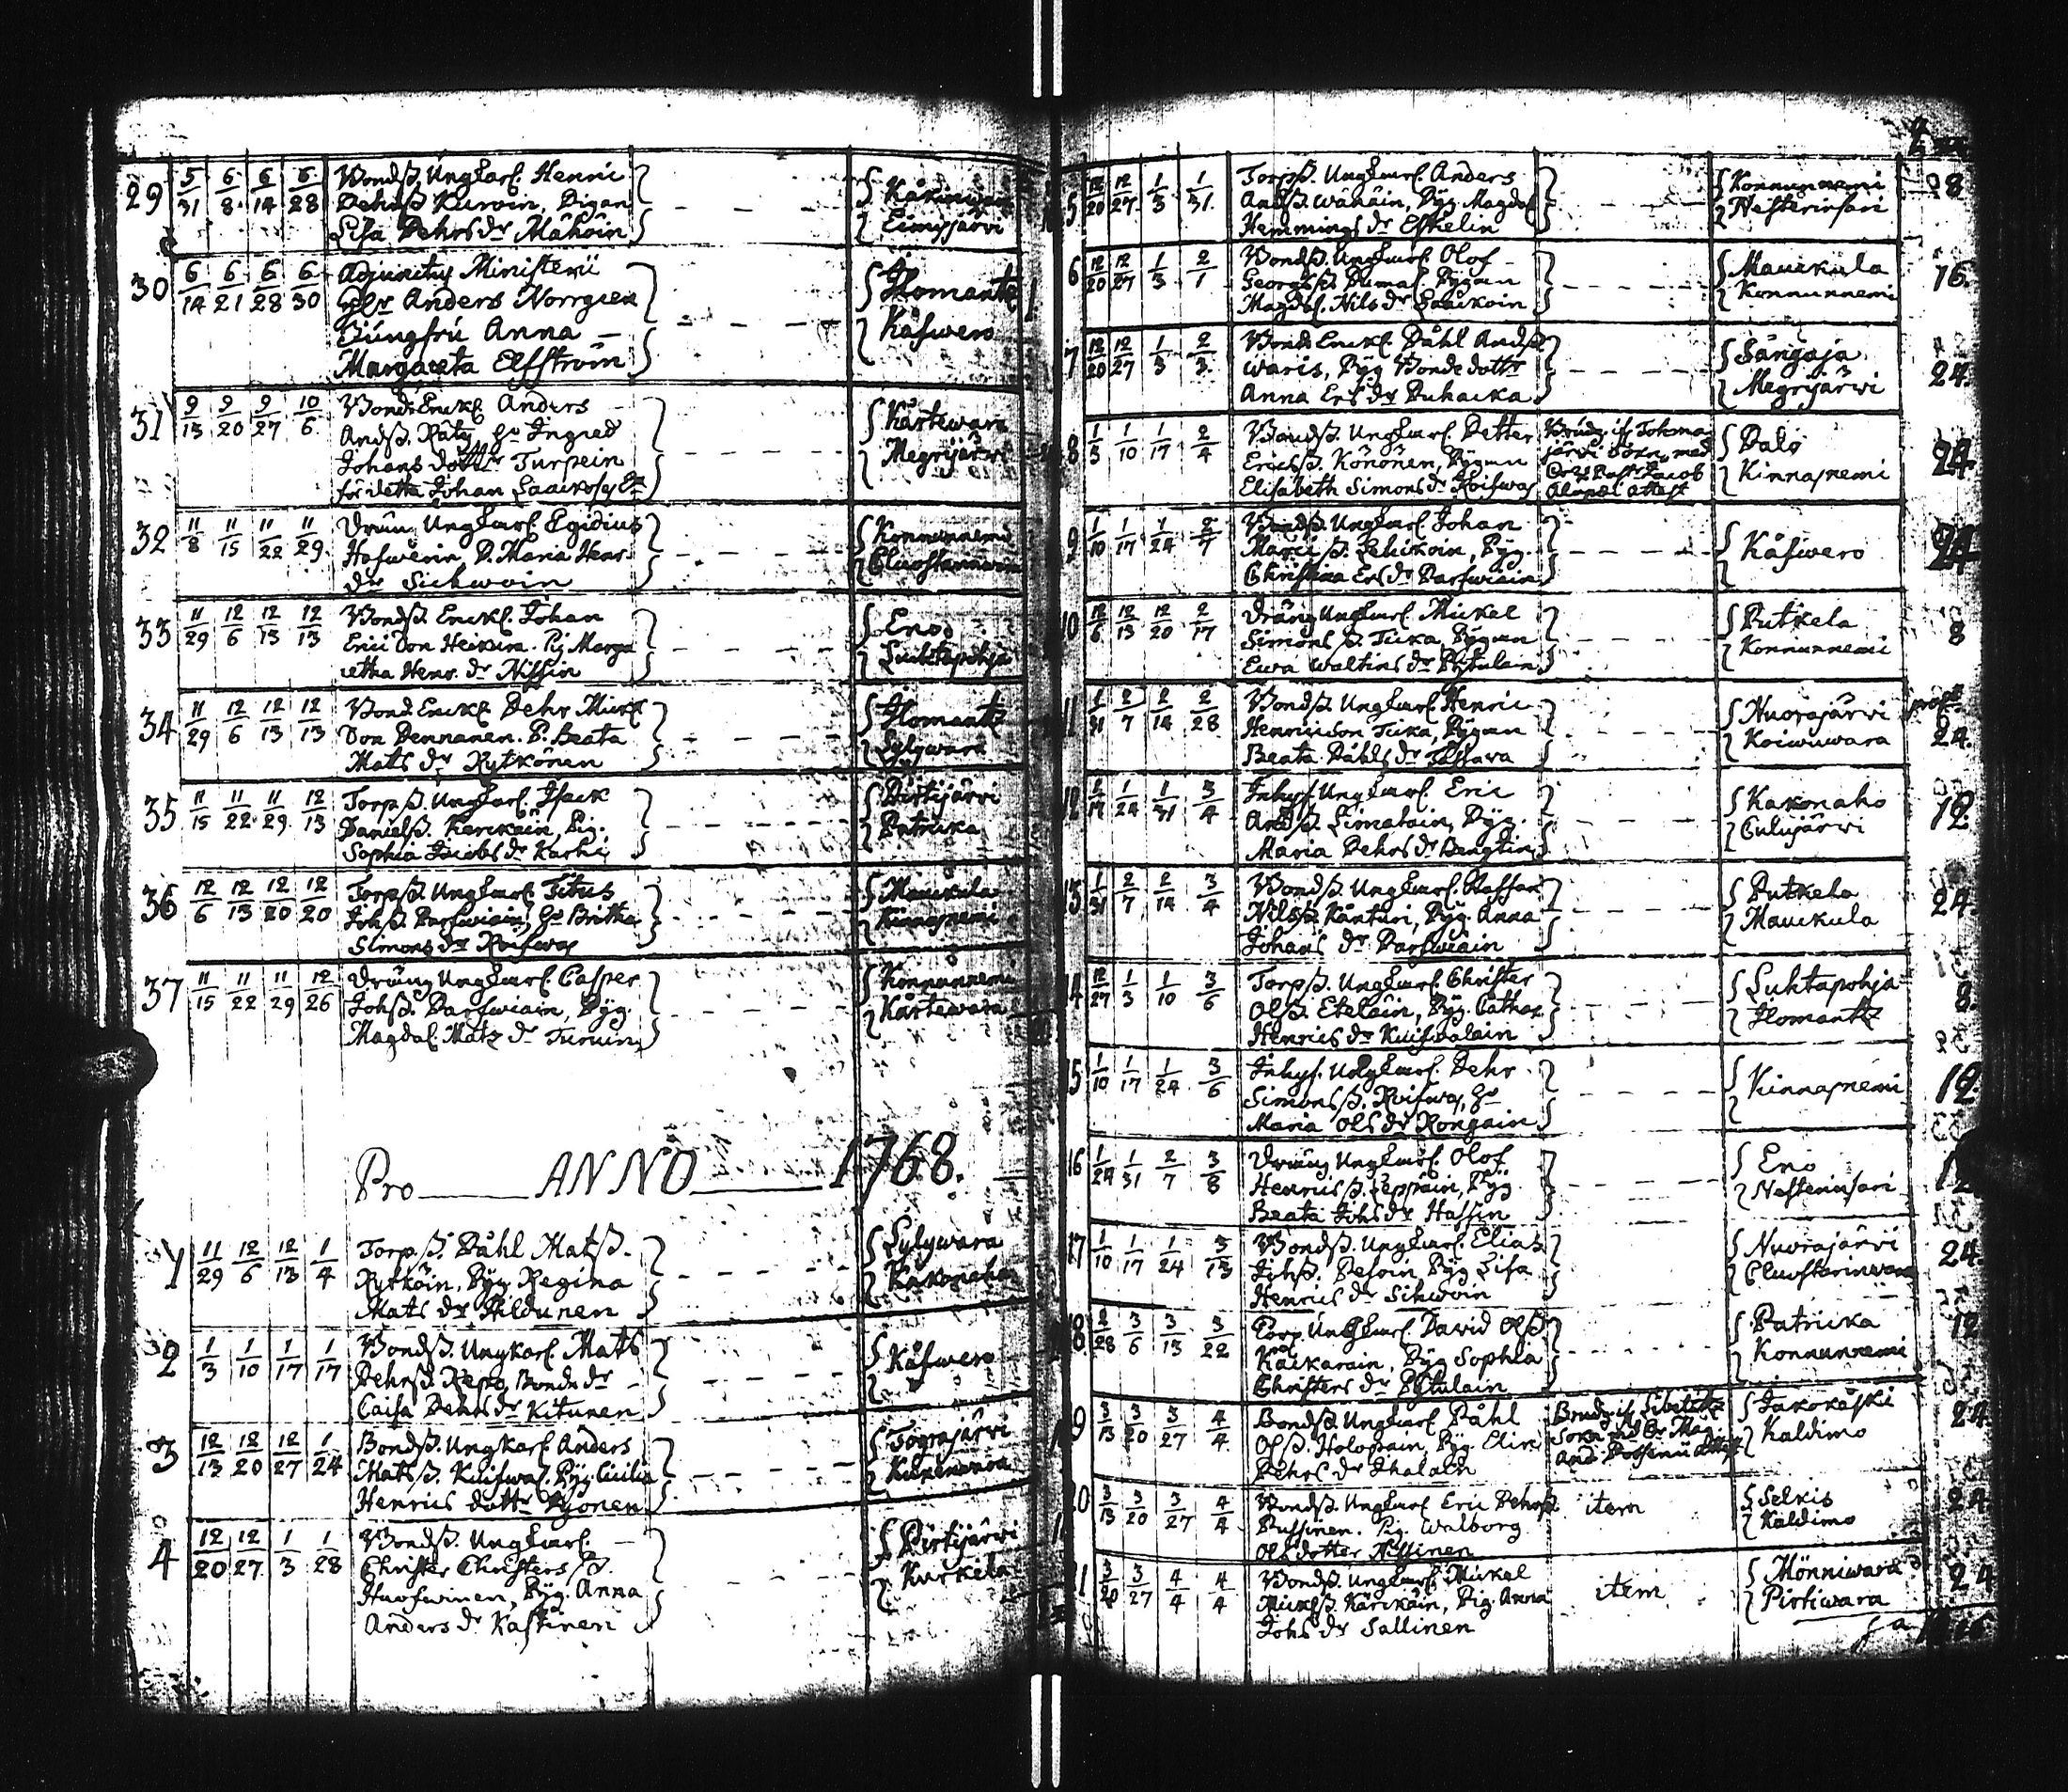 29 5/31 6/8 6/14 6/28 Bondß. Ungkarl. Henric
Pehrß Kurvin, Pigan
Lisa Pehrsdr Måhöin
Eimijärvi
30 6/14 6/21 6/28 6/30 Adjunctus Ministerii
Anders Norrgren
Jungfru Anna —
Margareta Elfström
Ilomantz
Kåfwero
31 9/13 9/20 9/27 10/6 Bond. Enckl. Anders
Andß. Räty, Ingred
Johans dotter Turpein
för detta Johan
Kårtewara
Megrijärwi
32 11/8 11/15 11/22 11/29 Dräng Ungkarl. Egidius
P. Maria Henr.
dr Sickwoin
Konnunnemi
33 11/29 12/6 12/13 12/13 Bondß. Enckl. Johan
Erici Son Heickura. Pig Marga
retha Henr. dr Nissin
Eno
Luhtapohja
34 11/29 12/6 12/13 12/13 Bond Enckl Pehr Mick
Son Pennanen. P. Beata
Mats dr Rytkönen
Ilomantz
Sylywara
35 11/15 11/22 11/29 12/13 Torpß. Ungkarl. Isack
Danielß. Karckain, Pig.
Sophia Jacobs dr Karhi
Pirtijärvi
Patricka
36 12/6 12/13 12/20 12/20 Torpß. Ungkarl. Titus
Johß. Parfwiain, Britha
Simons dr Roifwas
Mauckula
Kinnasnemi
37 11/15 11/22 11/29 12/26 Dräng Ungkarl. Casper
Johß. Parfwiain, Pyg.
Magdal. Matz dr Turuin
Konnunnemi
Kårtewara
Pro ANNO 1768.
1 11/29 12/6 12/13 1/4 Torpß. Påhl Matß.
Rytköin, Pyg Regina
Mats dr Hildunen
Sylywara
Kakonaho
2 1/3 1/10 1/17 1/17 Bondß. Ungkarl Mats
Pehrß Repo, Bonde dr
Caisa Pehrs dr Kitunen
Kåfwero
3 12/13 12/20 12/27 1/24 Bondß. Ungkarl Anders
Matsß. Kuifwas. Pyg. Cicilia
Henrics dotter Ryönen
Tograjärvi
4 12/20 12/27 1/3 1/28 Bondß. Ungkarl. —
Christer Christers ß.
Huofwinen, Pyg. Anna
Anders dr Kastinen
Pirtijärwi
Kurkela
5 12/20 12/27 1/3 1/31 Torpß. Ungkarl. Anders
Andß. Wähäin, Pyg Magdal
Hemmings dr Eskelin
Konnunnemi
Nesterinsari
8
6 12/20 12/27 1/3 2/1 Bondß. Ungkarl Olof
Georgsß Pumal. Pygan
Magdal. Nils dr Laackoin
Mauckula
Konnunnemi
16.
7 12/20 12/27 1/3 2/3 Bond Enckl. Påhl Andß
Waris, Pyg Bonde dottr
Anna Ers dr Puhacka
Sångaja
Megrijärwi
24.
8 1/3 1/10 1/17 2/4 Bondß. Ungkarl. Petter
Ericsß. Könönen, Pygan
Elisabeth Simons dr Roifwas
Tohma
järvi Sokn, med
Jacob
Alopæi attest
Palo
Kinnasnemi
24.
9 1/10 1/17 1/24 2/7 Bondß. Ungkarl Johan
Marci ß. Lehikoin, Pyg.
Christina Ers dr Parfwiain
Kåfwero
24
10 12/6 12/13 12/20 2/17 Dräng Ungkarl. Mickel
Simons ß. Ticka, Pygan
Ewa Waltins dr Pitulain
Putkela
Konnunnemi
8
11 1/31 2/7 2/14 2/28 Bondß. Ungkarl Henric
Henricison Ticka, Pygan
Beata Påhls dr Tassava
Nuorajärvi
Koiwuwara
24.
12 1/17 1/24 1/31 3/4 Inhys. Ungkarl Eric
Andß Limatoin, Pyg.
Maria Pehrs dr Bengtin
Kakonaho
Culujärwi
12
13 1/31 2/7 2/14 3/4 Bondß. Ungkarl. Staffan
Nilsß. Känturi, Pyg. Anna
Johans dr Parfwiain
Putkela
Mauckula
24.
14 12/27 1/3 1/10 3/6 Torpß. Ungkarl. Christer
Olß. Eteläin, Pyg. Cathar
Henrics dr Kuifwalain
Luhtapohja
Ilomantz
8.
15 1/10 1/17 1/24 3/6 Inhys. Ungkarl. Pehr
Simonsß. Roifwas,
Maria Ols dr Rongain
Kinnasnemi
12.
16 1/24 1/31 2/7 3/8 Dräng Ungkarl. Olof
Henrics ß. Leppäin, Pyg
Beata Johs dr Hassin
Eno
Nesterinsari
12
17 1/10 1/17 1/24 3/13 Bondß. Ungkarl. Elias
Johß. Pesoin, Pyg Lisa
Henrics dr Sihwoin
Nuorajärvi
24.
18 2/28 3/6 3/13 3/22 Torp. Ungkarl David Olß.
Kackarain, Pyg Sophia
Christers dr Pitulain
Patricka
Konnunnemi
12
19 3/13 3/20 3/27 4/4 Bondß. Ungkarl Påhl
Olß. Holopain, Pyg. Elin
Pehrs dr Ihalain
Libelitz
Sokn
Jakokåski
Kaldimo
24.
20 3/13 3/20 3/27 4/4 Bondß. Ungkarl Eric Pehrß
Pussinen. Pig. Walborg
Olsdotter Nissinen
item
Selkis
Kaldimo
24.
21 3/20 3/27 4/4 4/4 Bondß. Ungkarl. Mickel
Mickelß. Kärckäin, Pig. Anna
Johs dr Sallinen
item
Mönniwara
Pirtiwara
24